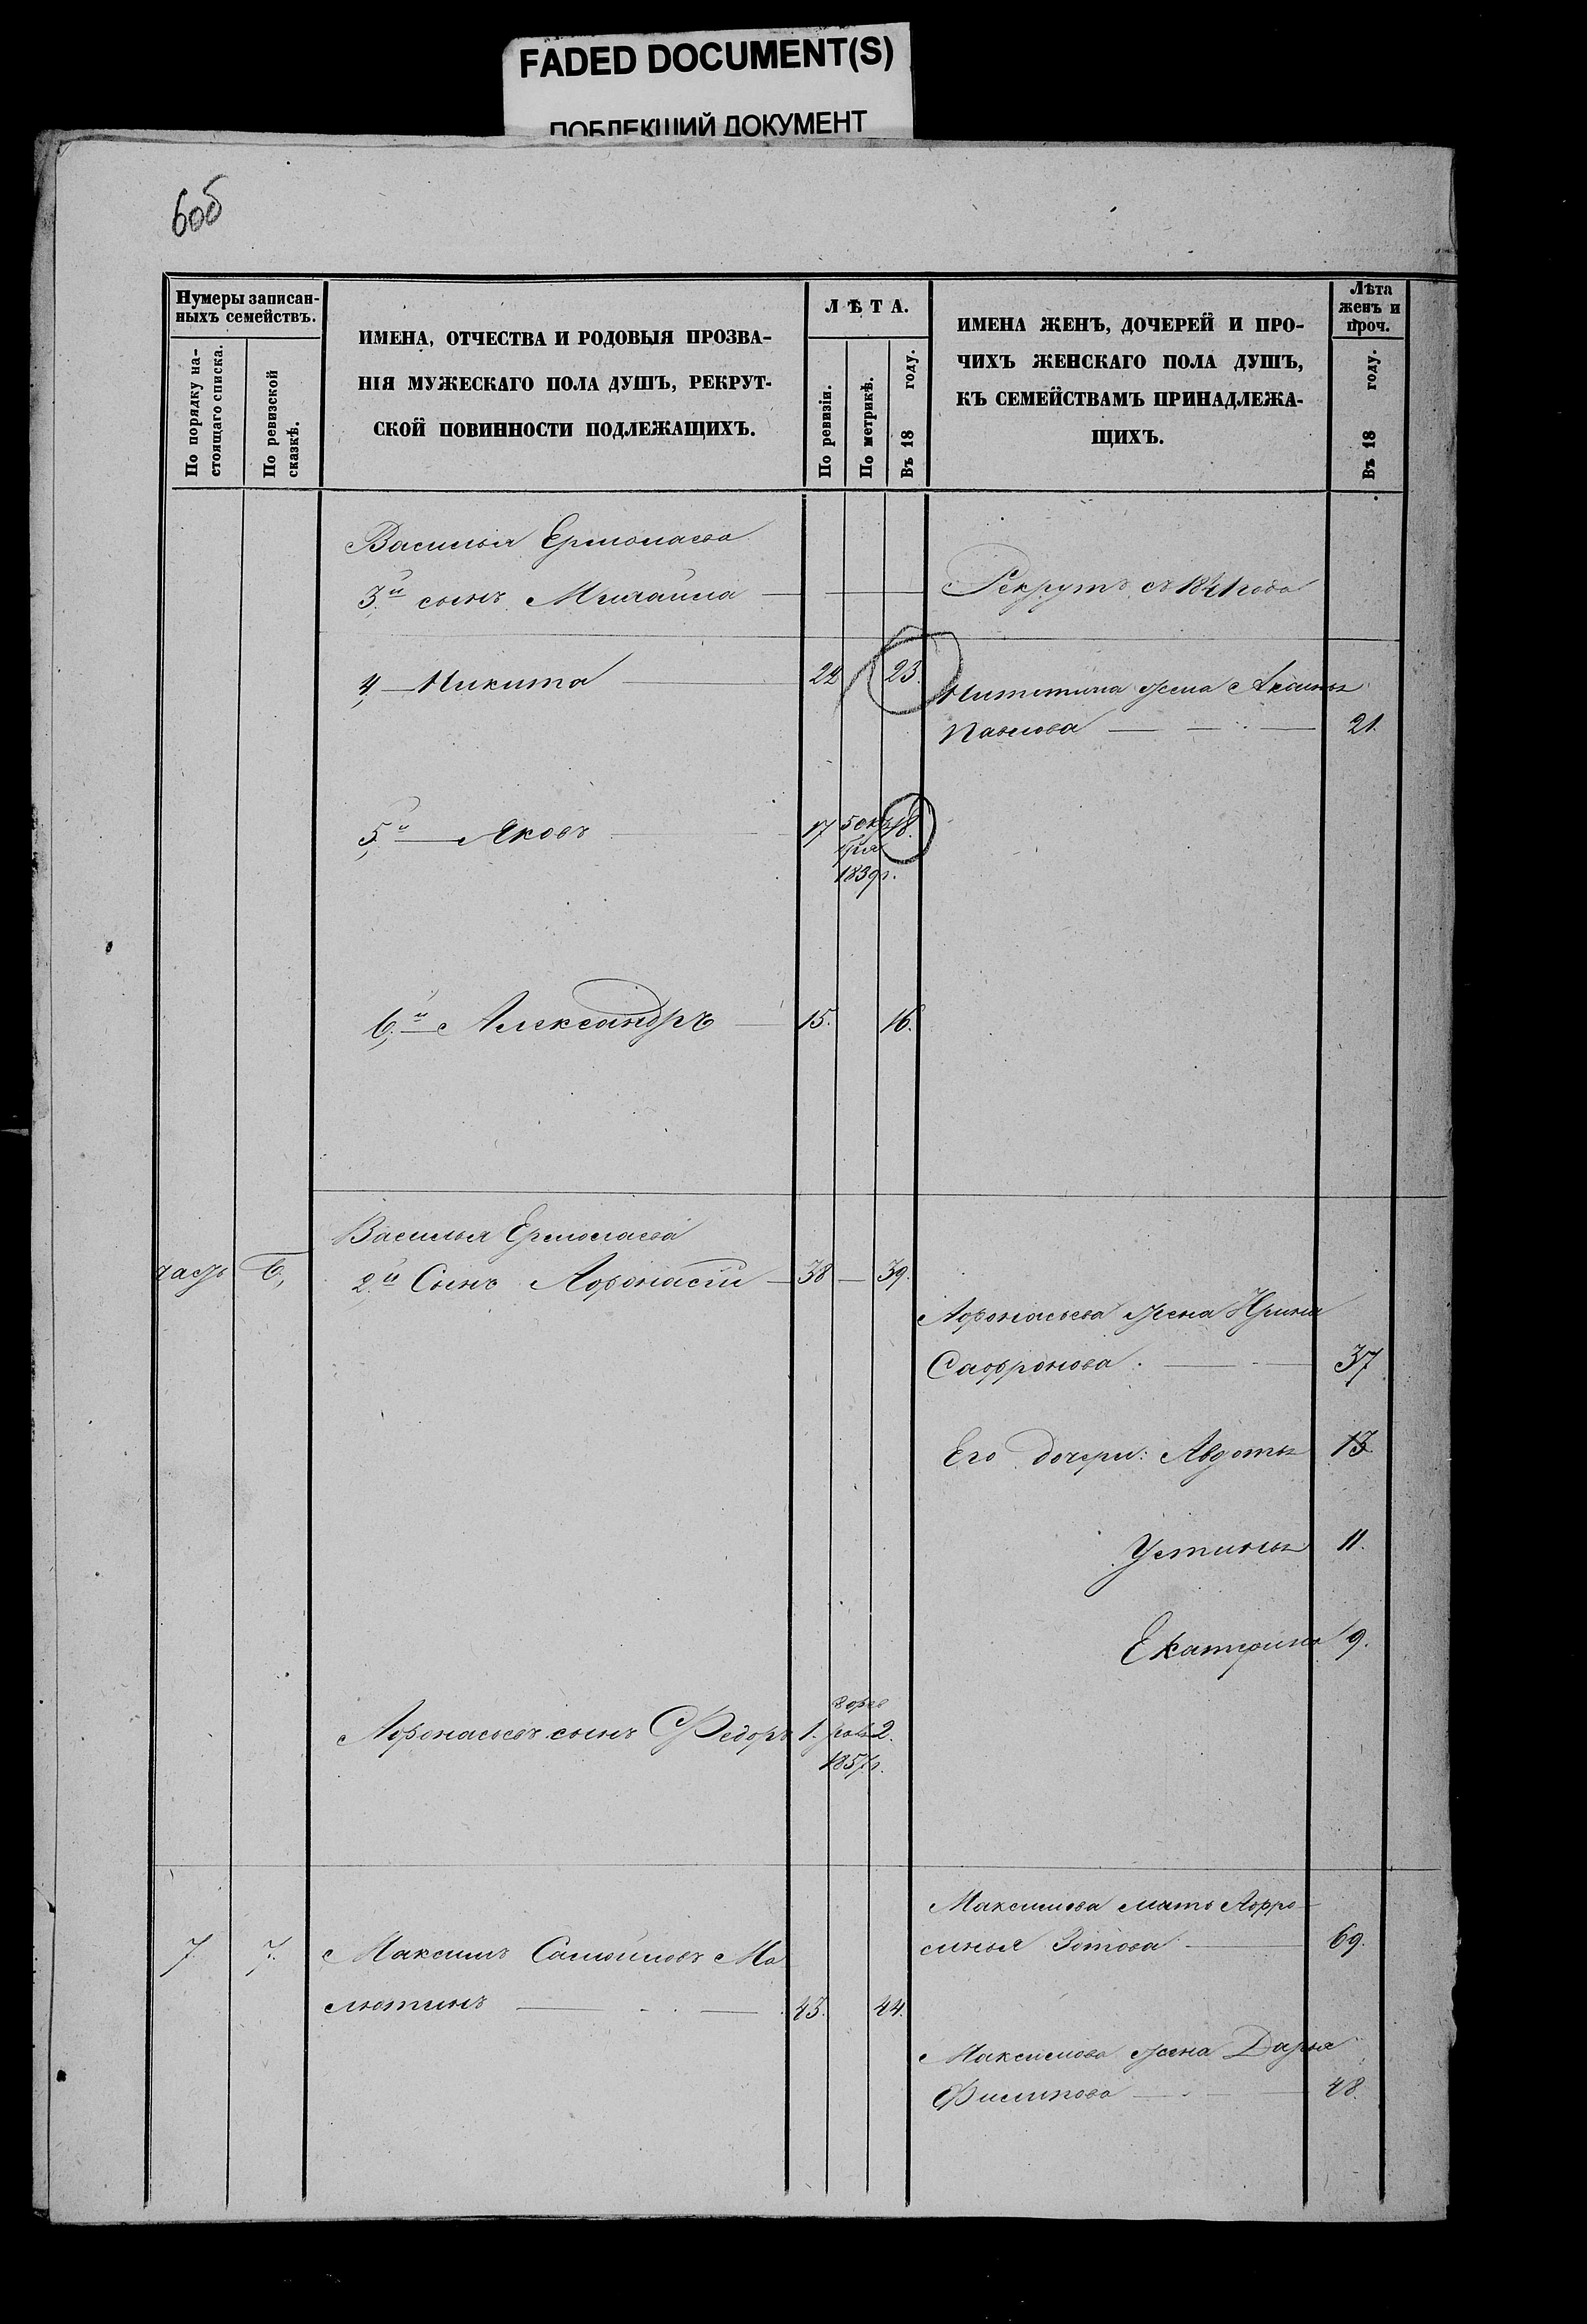 FADED DOCUMENT(S)
ПОБЛЕКШИЙ ДОКУМЕНТ
6об
Нумеры записан-
ныхъ семействъ.
По порядку на-
стоящаго списка.
По ревизской
сказкѣ.
ИМЕНА, ОТЧЕСТВА И РОДОВЫЯ ПРОЗВА-
НІЯ МУЖЕСКАГО ПОЛА ДУШЪ, РЕКРУТ-
СКОЙ ПОВИННОСТИ ПОДЛЕЖАЩИХЪ.
ЛѢТА.
По ревизіи.
По метрикѣ.
Въ 18 году.
ИМЕНА ЖЕНЪ, ДОЧЕРЕЙ И ПРО-
ЧИХЪ ЖЕНСКАГО ПОЛА ДУШЪ,
КЪ СЕМЕЙСТВАМЪ ПРИНАДЛЕЖА-
ЩИХЪ.
Лѣта
женъ и
проч.
Въ 18 году.
Василья Ермолаева
3й сынъ Михайла — Рекрутъ съ 1841 года
4, — Никита — 22 23.
Никитина жена Аксинья
Павлова — 21.
5й — Яковъ — 17 5 окт 18.
ября
1839г.
6й — Александръ — 15. 16.
Василья Ермолаева
часть 6, 2й Сынъ Афонасій — 38 — 39.
Афонасьева жена Ирина
Сафронова. — 37
Его дочери: Авдотья 13
Устинья 11.
Екатерина 9.
Афонасьевъ сынъ Федоръ 1. 8 фев
раля 2.
1857г.
7 7. Максимъ Самойловъ Ма
лютинъ — 43. 44.
Максимова мать Афро-
синья Зотова — 69.
Максимова жена Дарья
Филипова — 48.